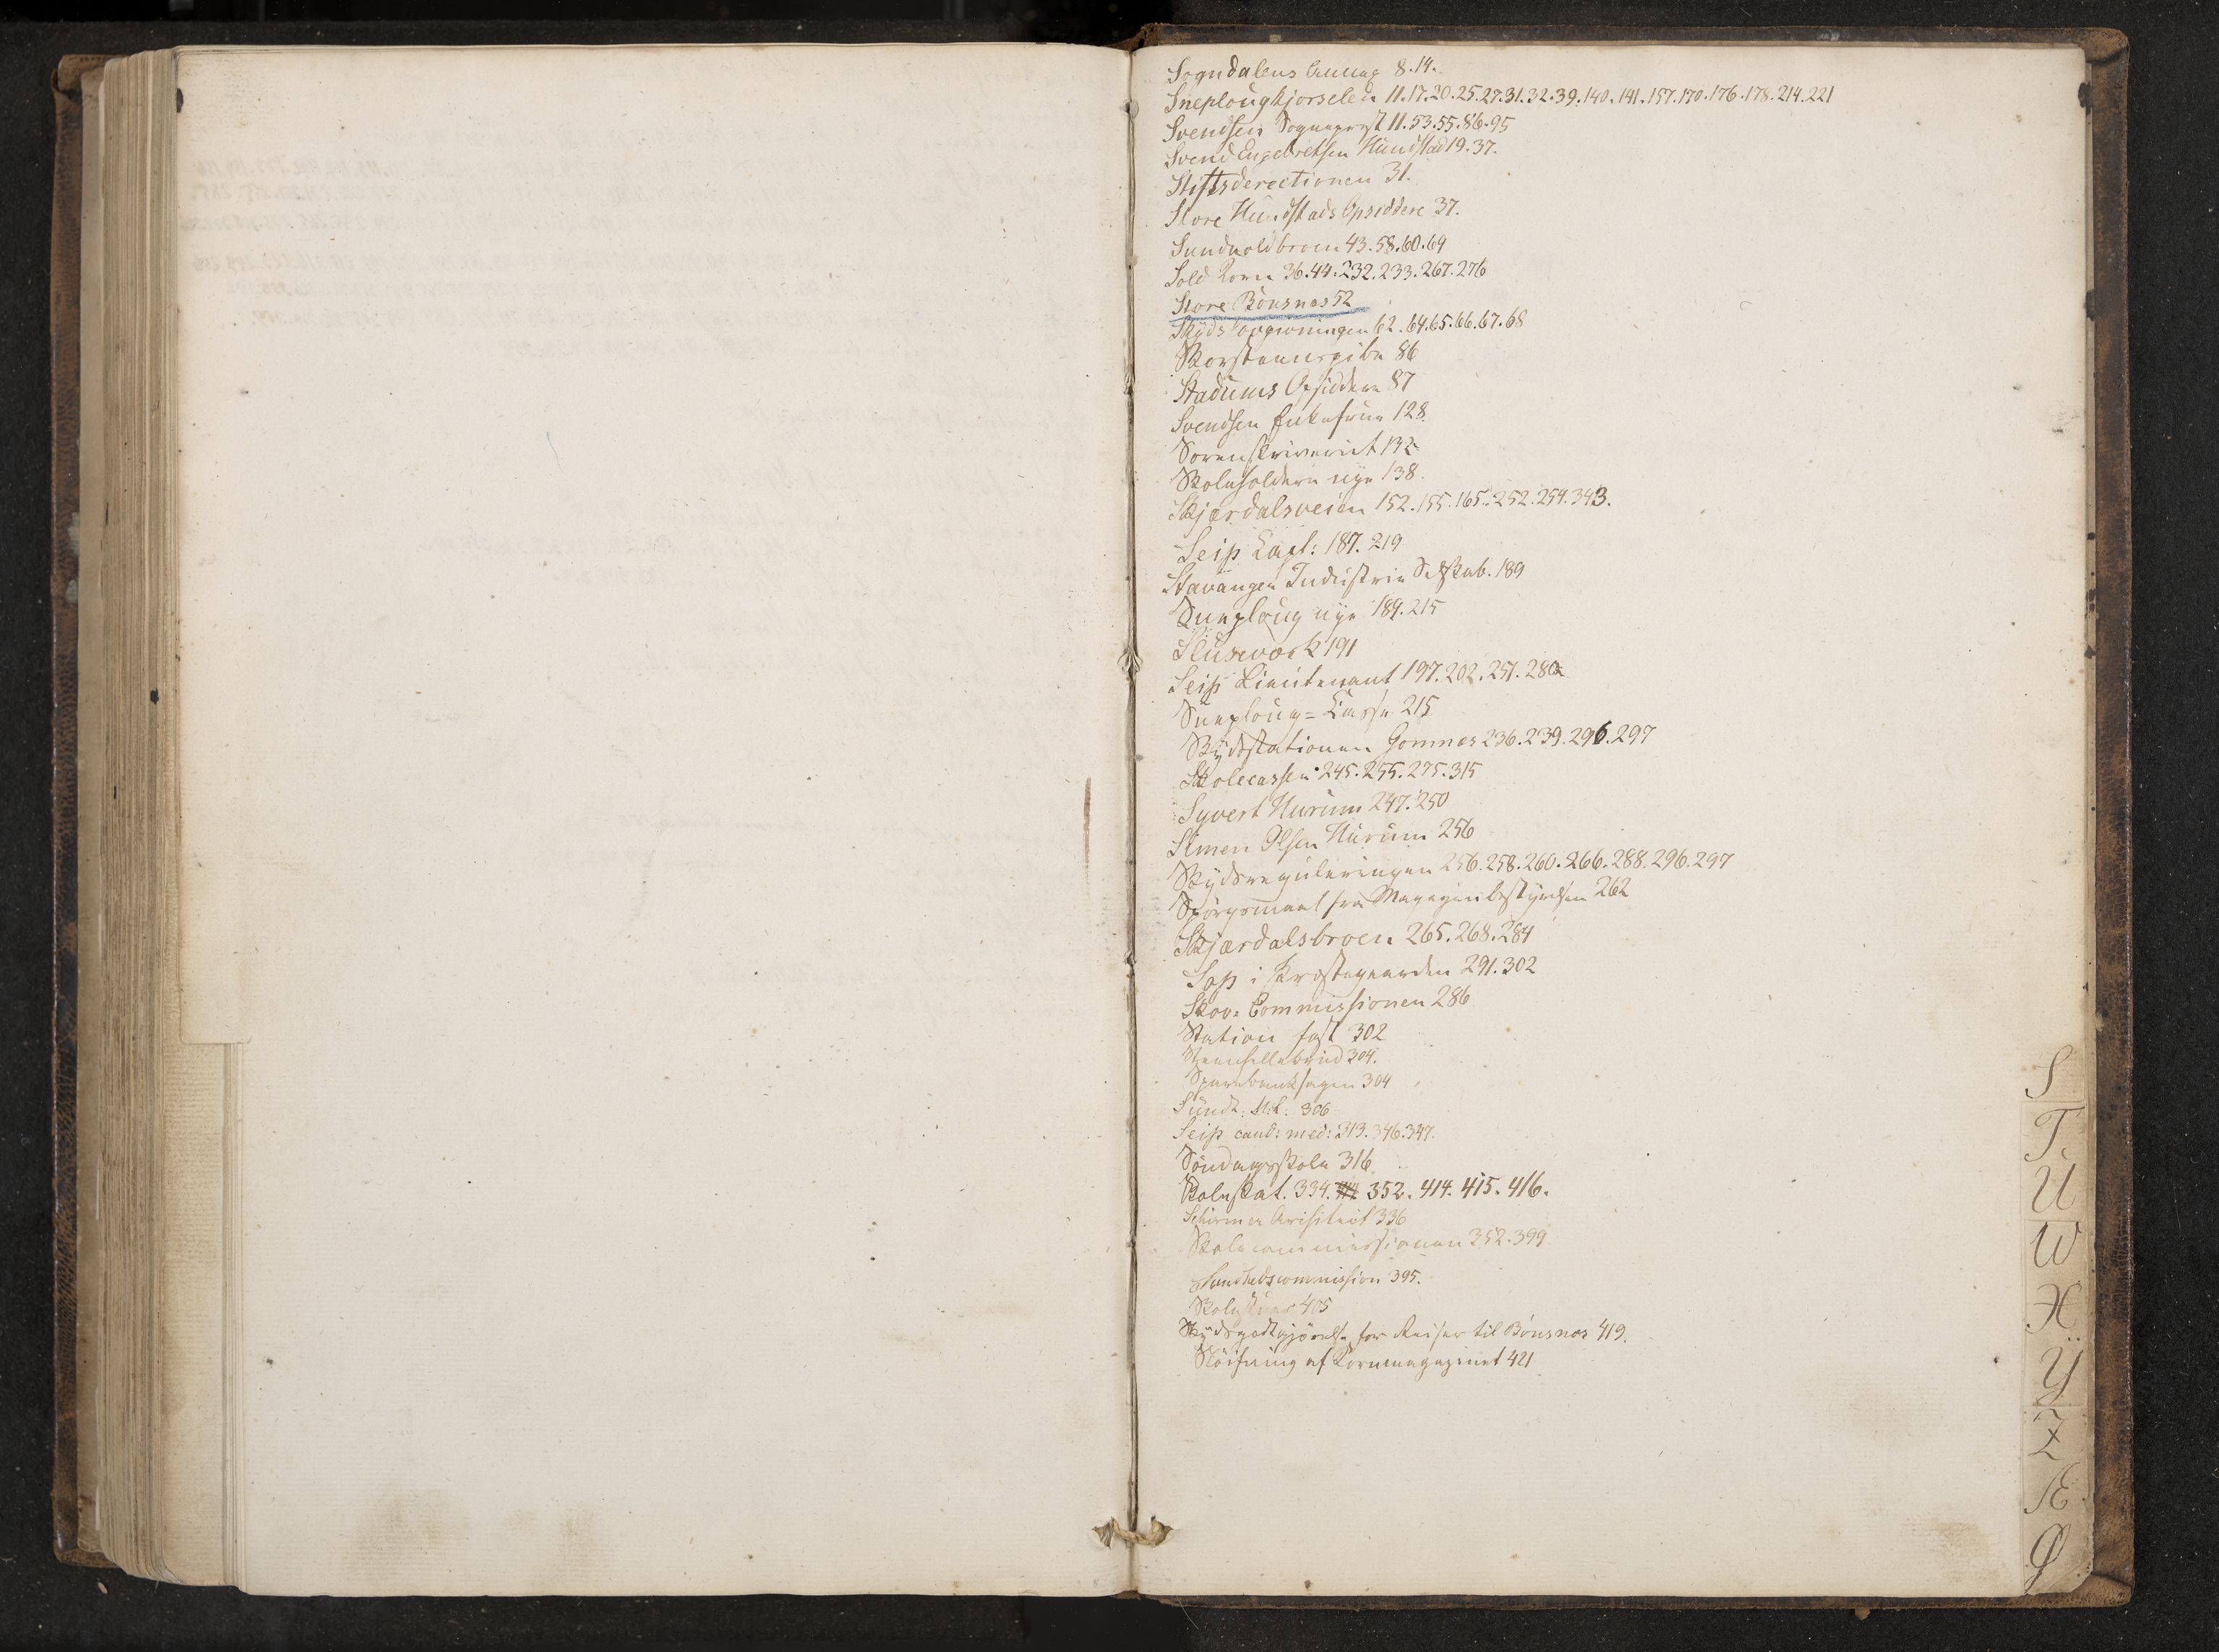 Sogndalens Anneg 8.14.
Sneplougkjorselen 11.17.20.25.27.31.32.39.140.141.157.170.176.178.214.221
Svendsen Sogneprest 11.53.55.86.95
Svend Engebretsen Hundstad 19.37.
Stiftsderectionen 31.
Store Hundstads Opsiddere 37.
Sundvoldbroen 43.58.60.69
Sold Korn 36.44.232.233.267.276
Store Bönsnes 52
Skyds 62.64.65.66.67.68
Skorsteensgibe 86
Stadums Opsiddere 87
Svendsen Enkefrue 128
Sorenskriveriet 132
Skoleholdere nye 138
Skjærdalsveien 152.155.165.252.254.343.
Seip Capl: 187.219
Stavanger Industrie Selskab. 189
Sneploug nye 189.215
Slusevæsk 191
Seip Lieutenant 197.202.257.280
Sneploug=Casse 215
Skydsstationen Gomnes 236.239.296.297
Skolecassen 245.255.275.315
Syvert Hurum 247.250
Simen Olsen Hurum 256
Skydsreguleringen 256.258.260.266.288.296.297
Spörgsmaal fra Magazinbestyrelsen 262
Skjærdalsbroen 265.268.284
i Præstegaarden 291.302
Skov=Commissionen 286
Station fast 302
304.
Sparebanksagen 304
Sundt: 306
Seip cand: med: 313.346.347.
Söndagsskole 316
Skoleskat. 334. 352. 414. 415. 416.
Schirmer Arkitect 336
Skolecommissionen 352.399
Sundhedscommission 395.
405
Skydsgodtgjörelse for Reiser til Bönsnes 419.
Slöifning af Kornmagazinet 421
S
T.
U
W
X
Y
Z
Æ
Ø